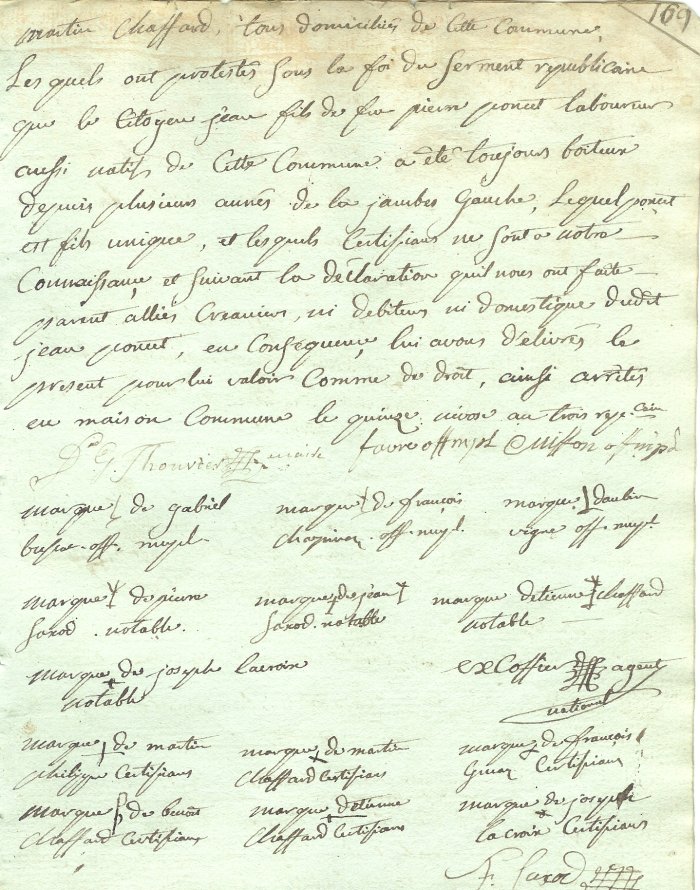 169
martin Chaffard, tous domiciliés de Cette Commune,
Les quels ont protestés sous la foi du serment republicaine
que le Citoyen jean fils de feu pierre poncet laboureur
aussi natif de Cette Commune a été toujours boiteux
depuis plusieurs années de la jambes Gauche, Lequel poncet
est fils unique, et lesquels Certifians ne sont a notre
Connaissance, et suivant la déclaration quils nous ont faite
parent alliés Creanciers, ni debiteurs ni domestique dudit
jean poncet, en Conséquence lui avons délivrés le
present pour lui valoir Comme de droit, ainsi arrêtés
en maison Commune le quinze nivose an trois repe. Cain
Thouvier maire favre off mpl Cuffon off mpl
marque de gabriel marque de françois marque
off. mupl. off. mupl. vigne off. mupl.
marque de pierre marque de jean marque detienne Chaffard
Saxod notable Saxod notable notable
marque de joseph lacroix excoffier agent
notable national
marque de martin marque de martin marque de françois
philippe Certifians Chaffard Certifians Certifians
marque de benoit marque detienne marque de joseph
Chaffard Certifians Chaffard Certifians la croix Certifians
Saxod